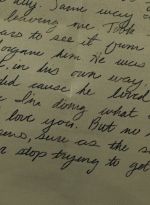 any. Same way
leaving me took
ars to see it from
organe him He was
in his own way,
did cause he loved
I'm doing what
love you. But no
sure as the
stop trying to get